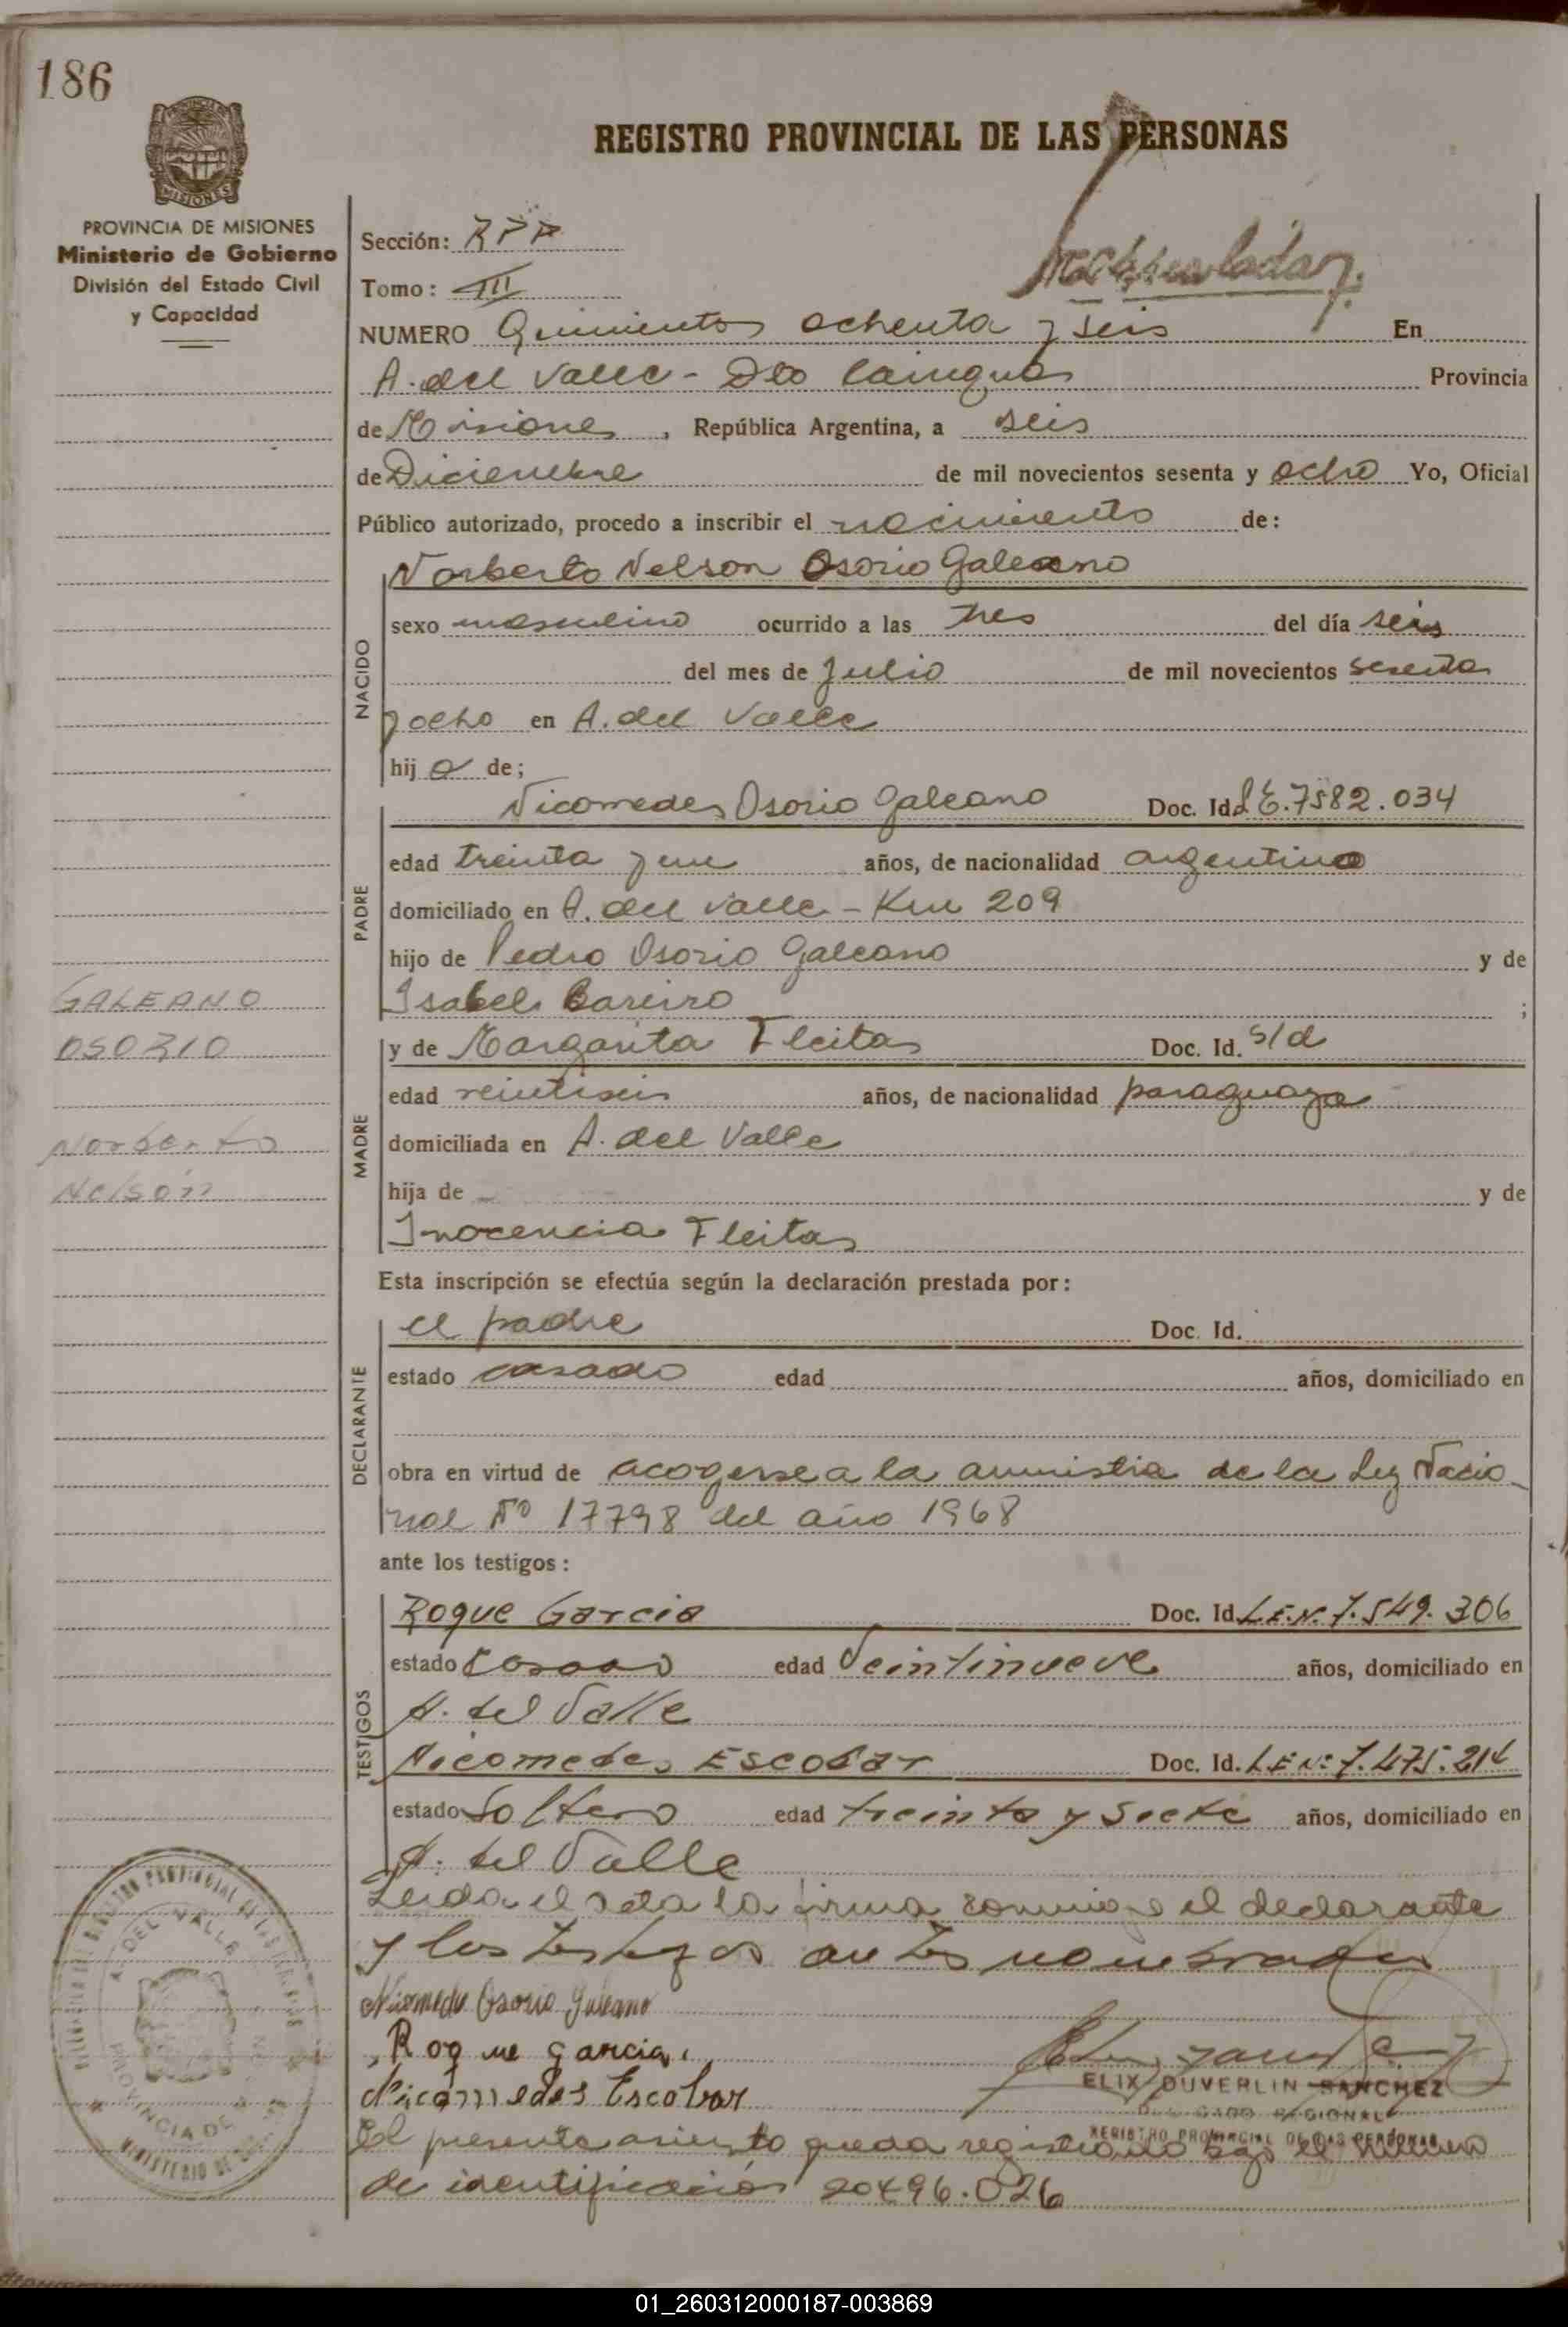 186
REGISTRO PROVINCIAL DE LAS PERSONAS
MISIONES
PROVINCIA DE MISIONES
Ministerio de Gobierno
División del Estado Civil
y Capacidad
Sección: RPP
Tomo: III
NUMERO Quinientos ochenta y seis En
A. del Valle - Dto Cainguas Provincia
de Misiones, República Argentina, a seis
de Diciembre de mil novecientos sesenta y ocho Yo, Oficial
Público autorizado, procedo a inscribir el nacimiento de:
NACIDO
Norberto Nelson Osorio Galeano
sexo masculino ocurrido a las tres del día seis
del mes de Julio de mil novecientos sesenta
y ocho en A. del Valle
hijo de;
PADRE
Nicomedes Osorio Galeano Doc. Id. L E. 7582.034
edad treinta y un años, de nacionalidad argentino
domiciliado en A. del Valle - Km 209
hijo de Pedro Osorio Galeano y de
Isabel Bareiro ;
GALEANO
OSORIO
Norberto
Nelson
MADRE
y de Margarita Fleitas Doc. Id. s/d
edad veintiseis años, de nacionalidad paraguaya
domiciliada en A. del Valle
hija de - y de
Inocencia Fleitas
Esta inscripción se efectúa según la declaración prestada por:
DECLARANTE
el padre Doc. Id.
estado casado edad años, domiciliado en
obra en virtud de acogerse a la amnistia de la Ley Nacio
nal Nº 17798 del año 1968
ante los testigos:
TESTIGOS
Roque Garcia Doc. Id. L.E.N. 7.549.306
estado Casado edad Veintinueve años, domiciliado en
A. del Valle
Nicomedes Escobar Doc. Id. L.E Nº 7.475.214
estado Soltero edad treinta y siete años, domiciliado en
A. del Valle
Leida el acta la firma conmigo el declarante
y los testigos antes nombrados
Nicomedes Osorio Galeano
Roque Garcia
Nicomedes Escobar
ELIX DUVERLIN SANCHEZ
DELEGADO REGIONAL
REGISTRO PROVINCIAL DE LAS PERSONAS
El presente asiento queda registrado bajo el número
de identificación 20496.026
A. DEL VALLE
PROVINCIA DE
MINISTERIO DE
01_260312000187-003869